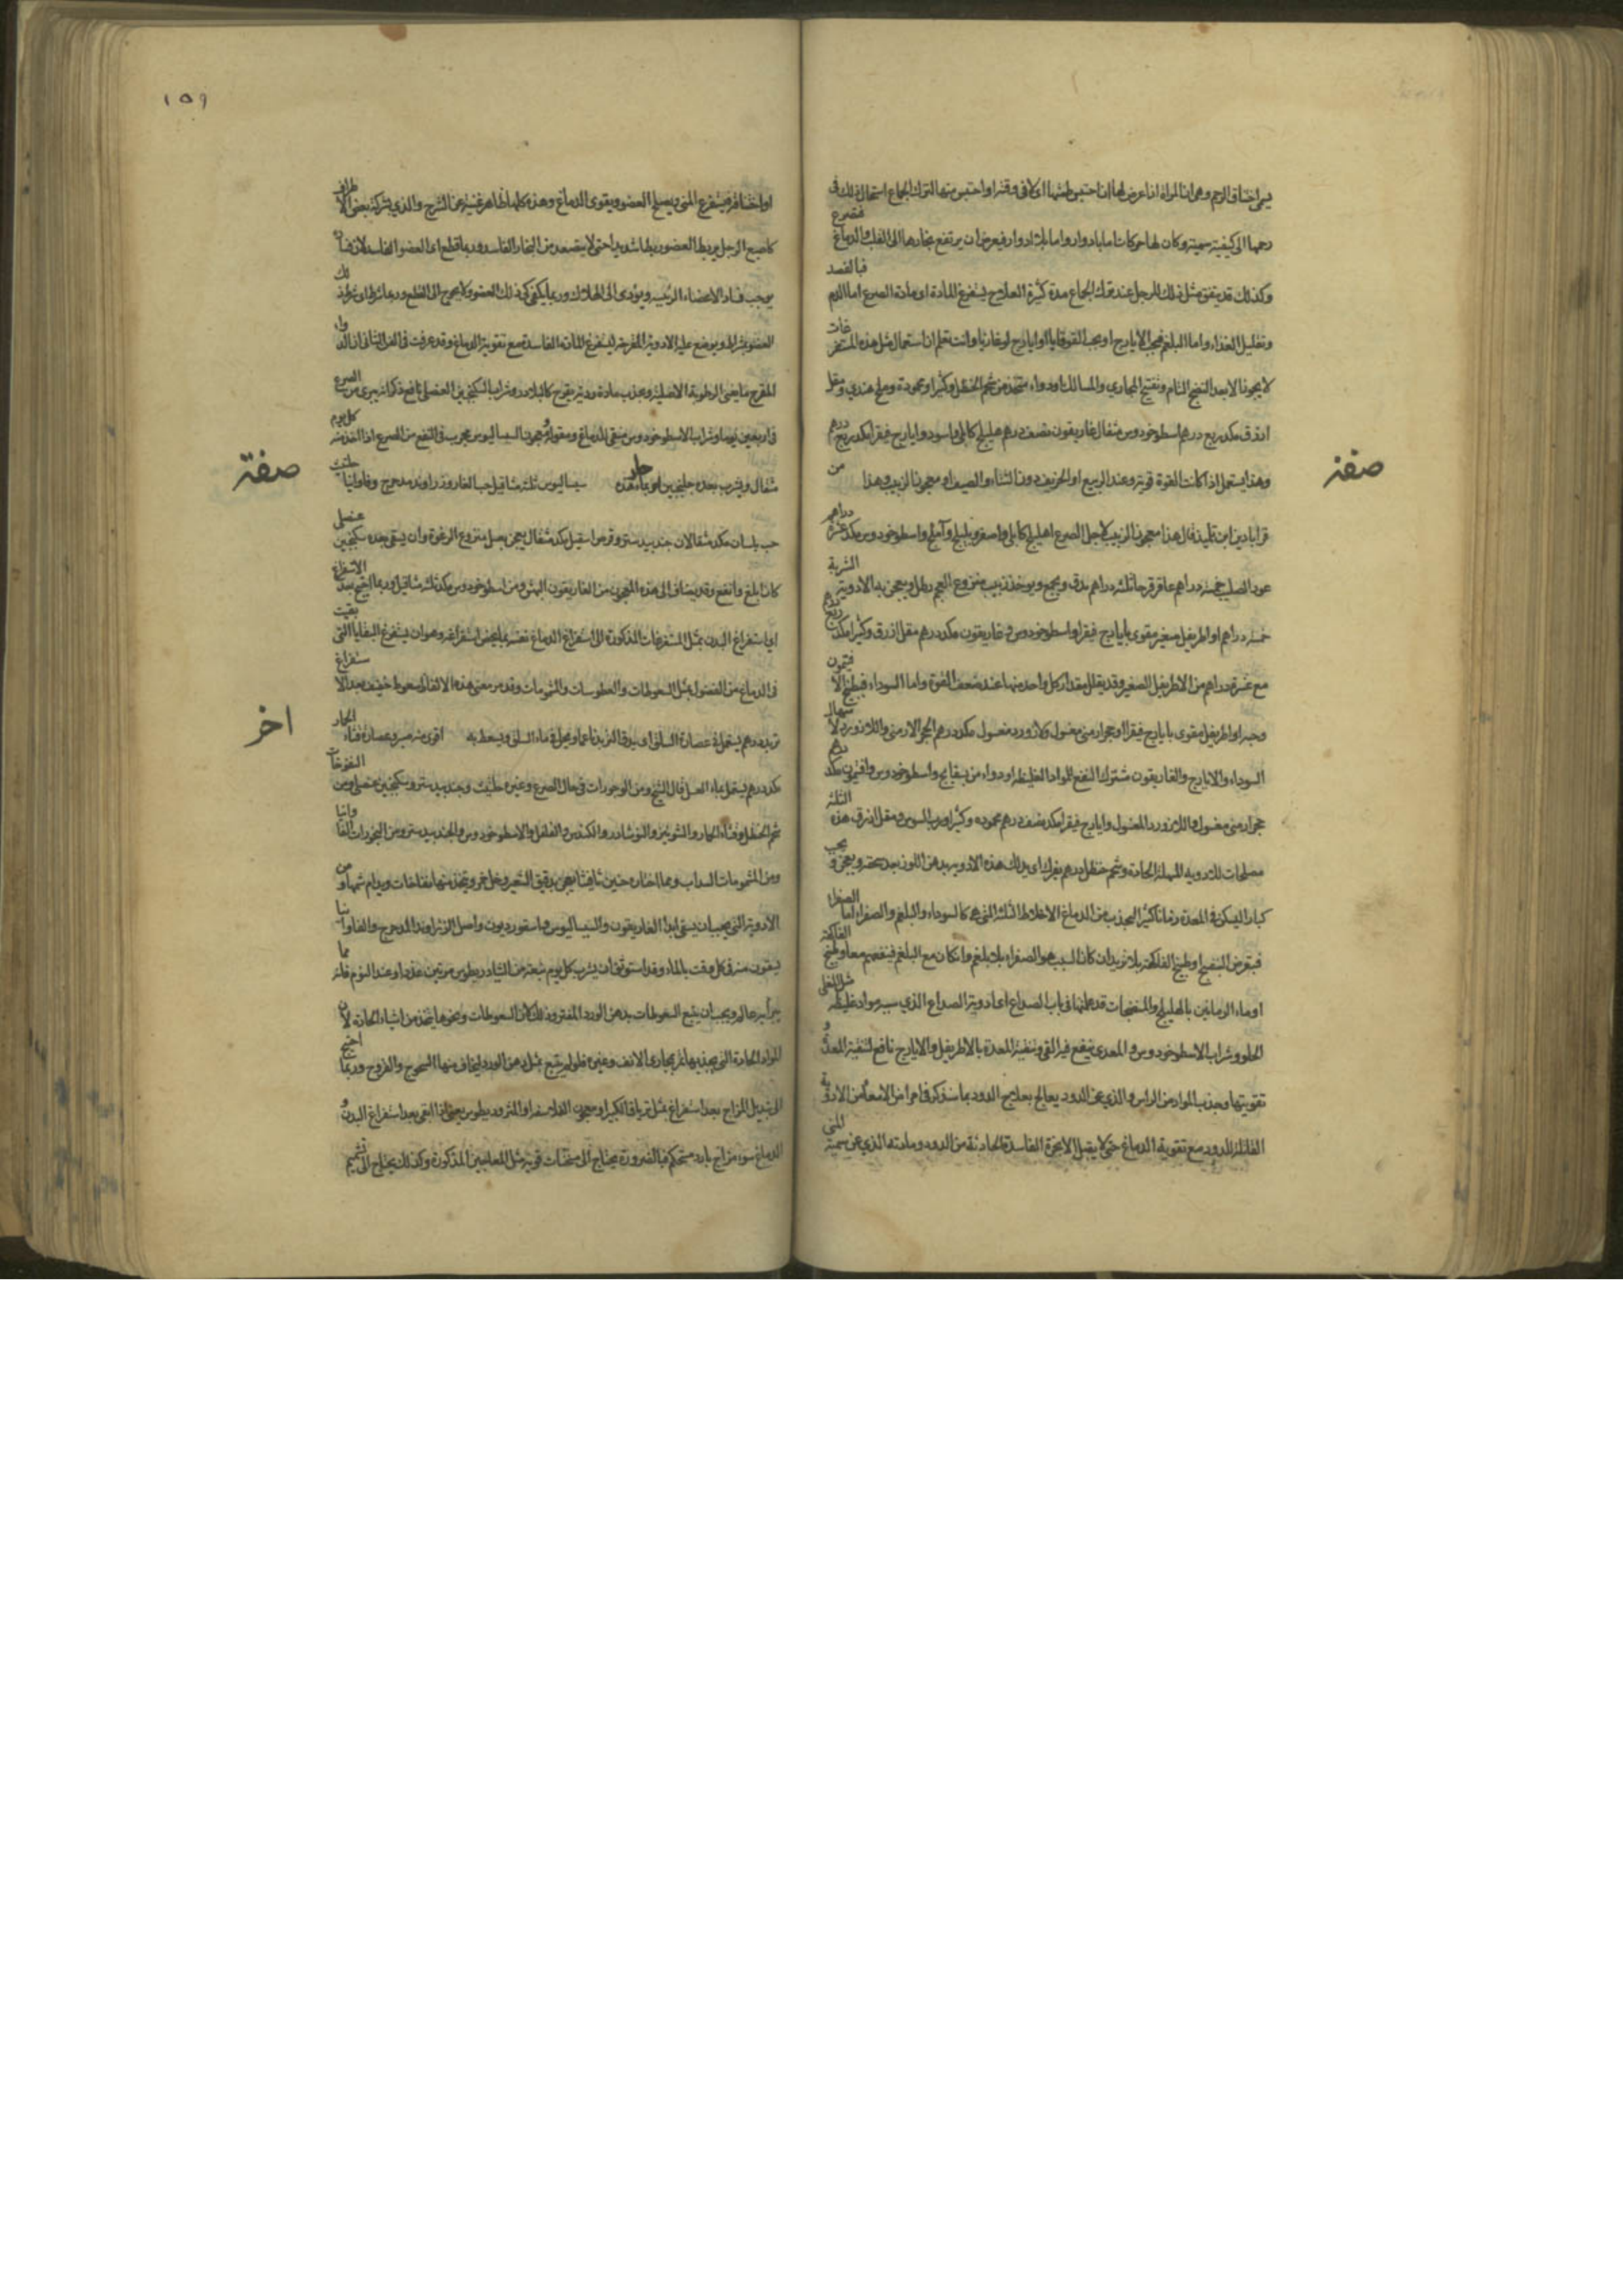 يسمى اختناق الرحم وهى ان المراة اذا عرض لها ان احتبس طمثها اى لا فى وقته او احتبس منيها لترك الجماع استحال ذلك فى
رحمها الى كيفية سمية وكان لها حركات اما بادوار واما بلا ادوار فيعرض ان يرتفع بخارها الى القلب والدماغ فتصرع
وكذلك قد يتفق مثل ذلك للرجل عند ترك الجماع مدة كثيرة العلاج يستفرغ المادة اى مادة الصرع اما الدم فبالفصد
وتقليل الغذاء واما البلغم فبحب الايارج او بحب القوقايا او ايارج لوغاذيا وانت تعلم ان استعمال مثل هذه المستفرغات
لا يجوز الا بعد النضج التام وتفتيح المجارى والمسالك او دواء متخذ من شحم الحنظل وكثيرا ومحمودة وملح هندي ومقل
ازرق مكد ربع درهم اسطوخودوس مثقال غاريقون نصف درهم هليلج كابلى واسود وايارج فيقرا مكد ربع درهم
صفته
وهذا يستعمل اذا كانت القوة قوية وعند الربيع او الخريف دون الشتاء والصيف او معجون الزبيب وهذا من
قرابادين ابن تلميذ قال هذا معجون الزبيب لاجل الصرع اهليلج كابلى واصفر وبليلج وآملج واسطوخودوس مكد عشرة دراهم
عود الصليب خمسة دراهم عاقرقرحا ثلثة دراهم يدق ويجمع ويوخذ زبيب منزوع العجم رطل ويعجن به الادوية الشربة
خمسة دراهم او اطريفل صغير مقوى بايارج فيقرا واسطوخودوس وغاريقون مكد درهم مقل ازرق وكثيرا مكد ربع درهم
مع عشرة دراهم من الاطريفل الصغير وقد يقلل مقدار كل واحد منها عند ضعف القوة واما السوداء فبطبيخ الافتيمون
وحبه او اطريفل مقوى بايارج فيقرا او حجر ارمنى مغسول ولازورد مغسول مكد درهم الحجر الارمنى واللازورد لاسهال
السوداء والايارج والغاريقون مشترك النفع للمواد الغليظة او دواء من بسفايج واسطوخودوس وافتيمون مكد درهم
حجر ارمنى مغسول واللازورد المغسول وايارج فيقرا مكد نصف درهم محموده وكثيرا ورب السوس ومقل ازرق هذه الثلثة
مصلحات للادوية المسهلة الحادة وشحم حنظل درهم يفرك اى يدلك هذه الادوية بدهن اللوز بعد سحقه ويعجن ويحبب
كبارا ليسكن فى المعدة زمانا كثيرا ليجذب من الدماغ الاخلاط الثلثة التى هى كالسوداء والبلغم والصفراء اما الصفراء
فبقرص البنفسج او طبيخ الفاكهة بلا تربد ان كان السبب هو الصفراء بلا بلغم وان كان مع البلغم فبقرصهم معا وطبيخ الفاكهة
او ماء الرمانين بالهليلج والمنضجات قد علمتها فى باب الصداع اعاد وية الصداع الذي سببه مواد غليظة مثل المغلى
الحلو وشراب الاسطوخودوس والمعدى ينفع فيه القى وتنقية المعدة بالاطريفل والايارج نافع لتنقية المعدة و
تقويتها وجذب المواد من الراس والذي عن الدود يعالج بعلاج الدود بما سنذكر فى امراض الامعاء من الادوية
القاتلة للدود مع تقوية الدماغ حتى لا يقبل الابخرة الفاسدة الحادثة من الدود ومادته الذي عن سمية المنى
١٥٩
او اختنا قه فيستفرغ المنى ويصلح العضو ويقوى الدماغ وهذه كلها ظاهر غنية عن الشرح والذي بشركة بعض الاطراف
كاصبع الرجل يربط العضو ربطا شديدا حتى لا يتصعد منه البخار الفاسد وربما قطع اى العضو الفاسد لان
يوجب فساد الاعضاء الرئيسة ويؤدى الى الهلاك وربما يكفى كى ذلك العضو ولا يحوج الى القطع وربما شرط ذلك
العضو بشرائط ويوضع عليه الادوية المقرحة ليستفرغ المادة الفاسدة مع تقوية الدماغ وقد عرفت فى الفن الثانى ان الدواء
المقرح ما يفنى الرطوبة الاصلية ويجذب مادة ردية يقرح كالبلادر وشراب السكنجبين العنصلى نافع ذكر انه يبرى من الصرع
فى اربعين يوما وشراب الاسطوخودوس منقى للدماغ ومقو له ومعجون السيساليوس مجرب فى النفع من الصرع اذا اخذ منه كل يوم
صفته
مثقال ويشرب بعده جلنجبين او بماء حار سيساليوس ثلثة مثاقيل حب الغار وزراوند مدحرج وفاوانيا حلتيت
حب بلسان مكد مثقالان جندبيدستر وقرص اسقيل مكد مثقال يعجن بعسل منزوع الرغوة وان يسقى بعده سكنجبين عنصلى
كان ابلغ وانفع وقد يضاف الى هذه المعجون من الغاريقون الهش ومن اسطوخودوس مكد ثلثة مثاقيل وربما احتيج بعد الاستفراغ
اى استفراغ البدن بمثل المستفرغات المذكورة الى استفراغ الدماغ نفسه بما يخص استفراغه وهو ان يستفرغ البقايا التى بقيت
فى الدماغ من الفضول بمثل السعوطات والعطوسات والشمومات وقد مر معنى هذه الالفاظ سعوط خفيف بعد الاستفراغ
اخر
تربد درهم يستعمل فى عصارة السلق اى يدق التربد ناعما ويحل فى ماء السلق ويسعط به اقوى منه صبر وعصارة قثاء الحمار
مكد درهم يستعمل بماء العسل قال الشيخ ومن الوجورات فى حال الصرع وغيره حلتيت وجندبيدستر وسكنجبين عنصلى ومن النفوخات
شحم الحنظل وقثاء الحمار والشونيز والنوشادر والكندس والفلفل والاسطوخودوس والجندبيدستر ومن البخورات الفاوانيا
ومن المشمومات السداب ومما اختاره حنين ثافيثا يعجن بدقيق الشعير وخل خمر ويتخذ منها نفاخات ويدام شمها ومن
الادوية التى يجب ان يسقى ابدا الغاريقون والسيساليوس واسقورديون واصل الزراوند المدحرج والفاوانيا
يسقون منه فى كل وقت بالماء وقد استوفق ان يشرب كل يوم من الشادريطوس مرتين غدوا وعند النوم فانه مما
يبرأ به عالم ويجب ان يتبع السعوطات بدهن الورد المفتر وذلك لان السعوطات ونحوها يتخذ من اشياء الحادة لان
المواد الحادة التى يجذبها تمر بمجارى الانف وغيره فلو لم يتبع بمثل دهن الورد ليخاف منها السحوج والقروح وربما احتيج
الى تبديل المزاج بعد استفراغ بمثل ترياق الكبير او معجون الفلاسفة او المثروديطوس يعنى اذا بقى بعد استفراغ البدن و
الدماغ سوء مزاج بارد مستحكم فبالضرورة يحتاج الى مسخنات قوية مثل المعاجين المذكورة وكذلك يحتاج الى تشميم